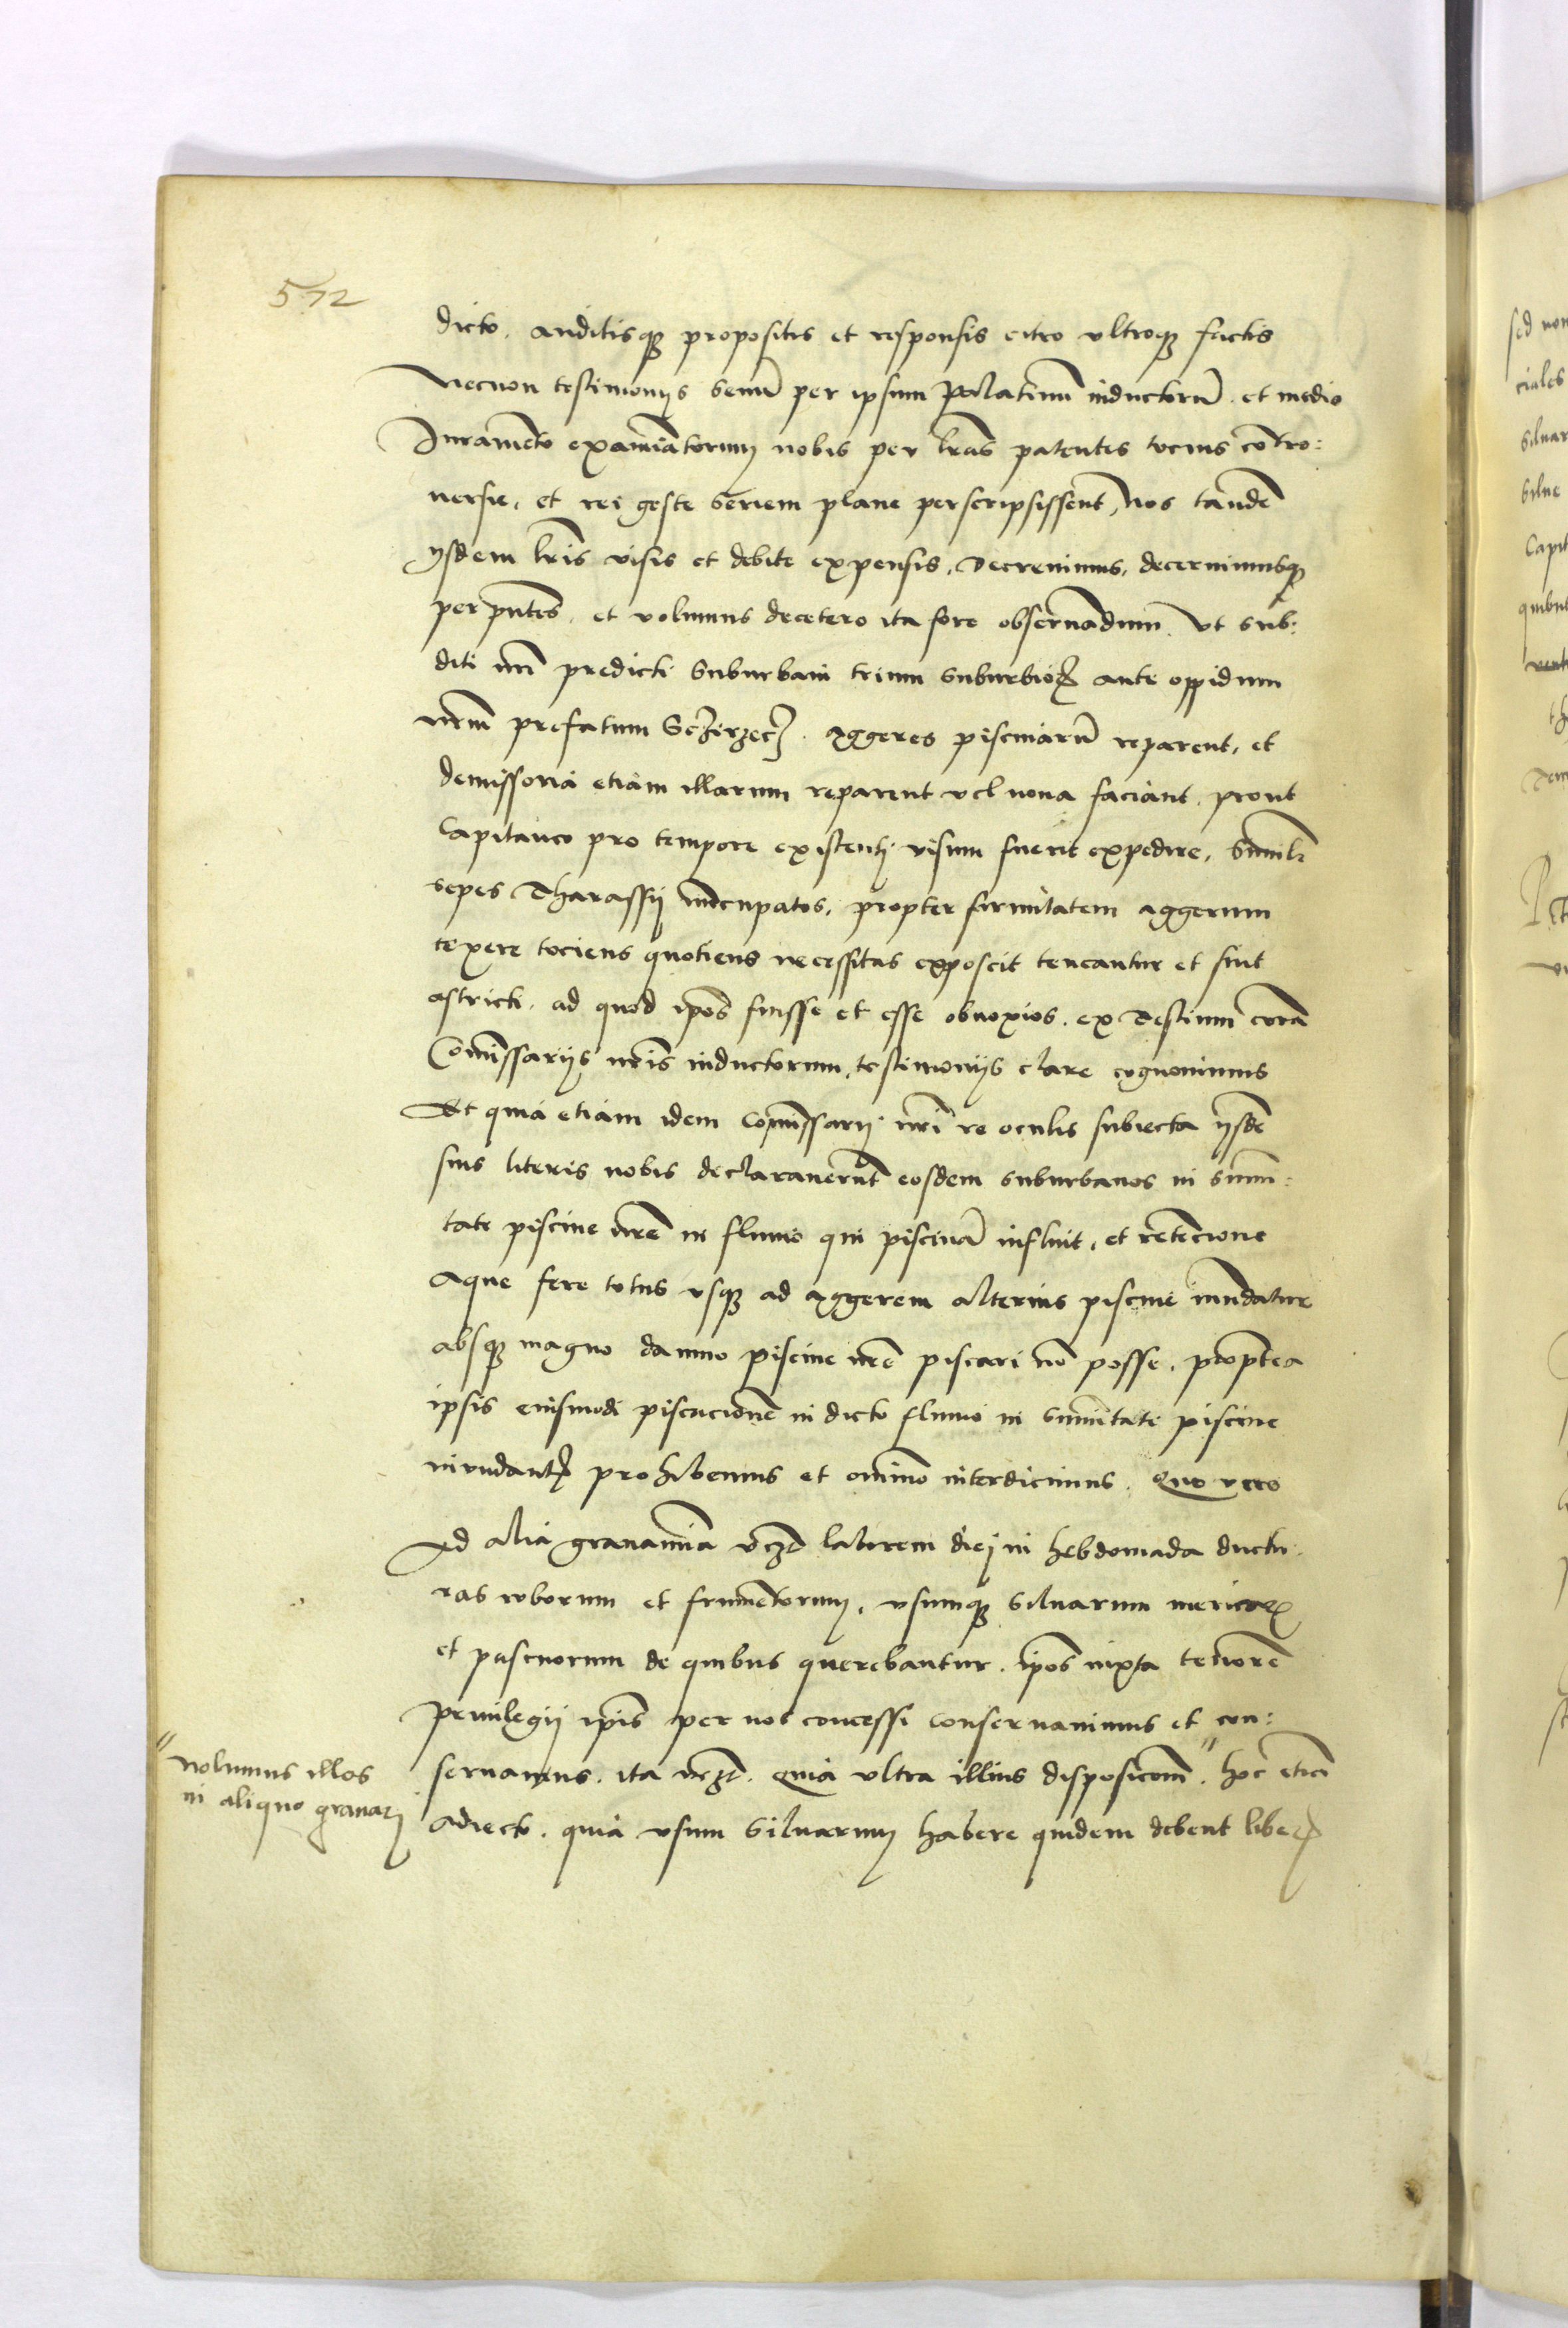 572
dicto. auditisq₃ propositis et responsis citro vltroq₃ factis
Necnon testimonijs senũ per ipsum Palatinũ inductorũ. et medio
Juramẽto examinatorum nobis per lr̃as patentes tocius cõtro:
uersie, et rei geste seriem plane perscripsissent, Nos tandẽ
ijsdem lr̃is visis et debite expensis, Decreuimus, decernimusq₃
per pñtes, et volumus decetero ita fore obseruãdum. Vt sub:
diti nr̃i predicti Suburbani trium suburbioꝝ ante oppidum
nr̃m prefatum Sczirzecz. Aggeres piscinarũ reparent, et
demissoria etiam illarum reparent vel noua faciant. prout
Capitaneo pro tempore existenti visum fuerit expedire, Similr̃
sepes Tharassij nũcupatos, propter firmitatem aggerum
texere tociens quotiens necessitas exposcit teneantur et sint
astricti. ad quod ip̃os fuisse et esse obnoxios. ex Testium corã
Com̃issarijs nr̃is inductorum, testimonijs clare cognouimus
Et quia etiam idem Com̃issarij nr̃i re oculis subiecta ijsdẽ
suis literis nobis declarauerũt eosdem suburbanos in sum̃i:
tate piscine nr̃e in fluuio qui piscinã influit, et retẽcione
aque fere totus vsq₃ ad aggerem alterius piscine inũdatur
absq₃ magno damno piscine nr̃e piscari nõ posse, propterea
ipsis eiusmodi piscacionẽ in dicto fluuio in sum̃itate piscine
inundantꝭ prohibemus et om̃ino interdicimus. Quo vero
Ad alia grauamina vcz̃t laborem diei in hebdomada ductu:
ras roborum et frumẽtorum, vsumq₃ siluarum mericaꝝ
et pascuorum de quibus querebantur. ip̃os iuxta tenorẽ
priuilegij ip̃is per nos concessi conseruauimus et con:
seruamus. ita vcz̃t. Quia vltra illius disposicõm̃ " hoc etiã
adiecto. quia vsum siluarum habere quidem debent liberꝝ
" nolumus illos
in aliquo grauarj